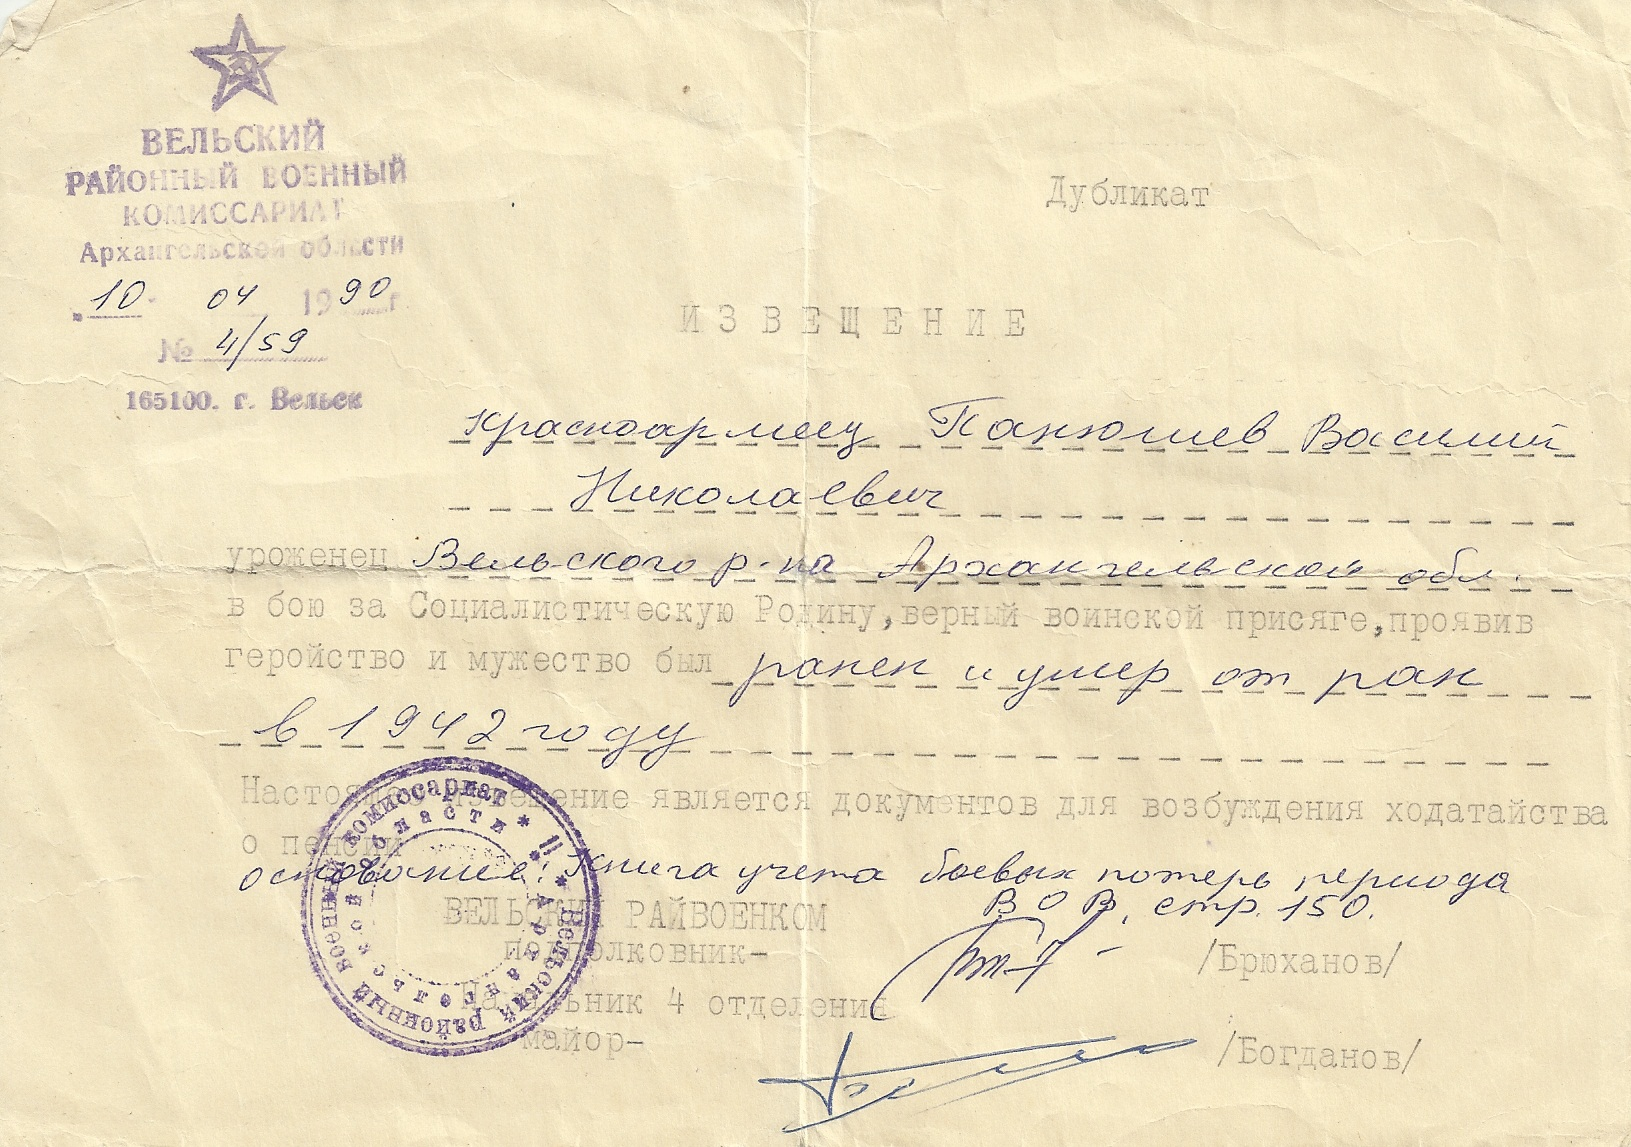 ВЕЛЬСКИЙ
РАЙОННЫЙ ВОЕННЫЙ
КОМИССАРИАТ
Архангельской области
"10" 04 1990 г.
№ 4/59
165100. г. Вельск
Дубликат
ИЗВЕЩЕНИЕ
Красноармеец Панюшев Василий
Николаевич
уроженец Вельского р-на Архангельской обл.
в бою за Социалистическую Родину, верный воинской присяге, проявив
геройство и мужество был ранен и умер от ран
в 1942 году
Настоящее извещение является документов для возбуждения ходатайства
о пенсии
основание: Книга учета боевых потерь периода
ВОВ, стр. 150.
ВЕЛЬСКИЙ РАЙВОЕНКОМ
подполковник- /Брюханов/
Начальник 4 отделения
майор- /Богданов/
Вельский районный военный комиссариат
Архангельской области